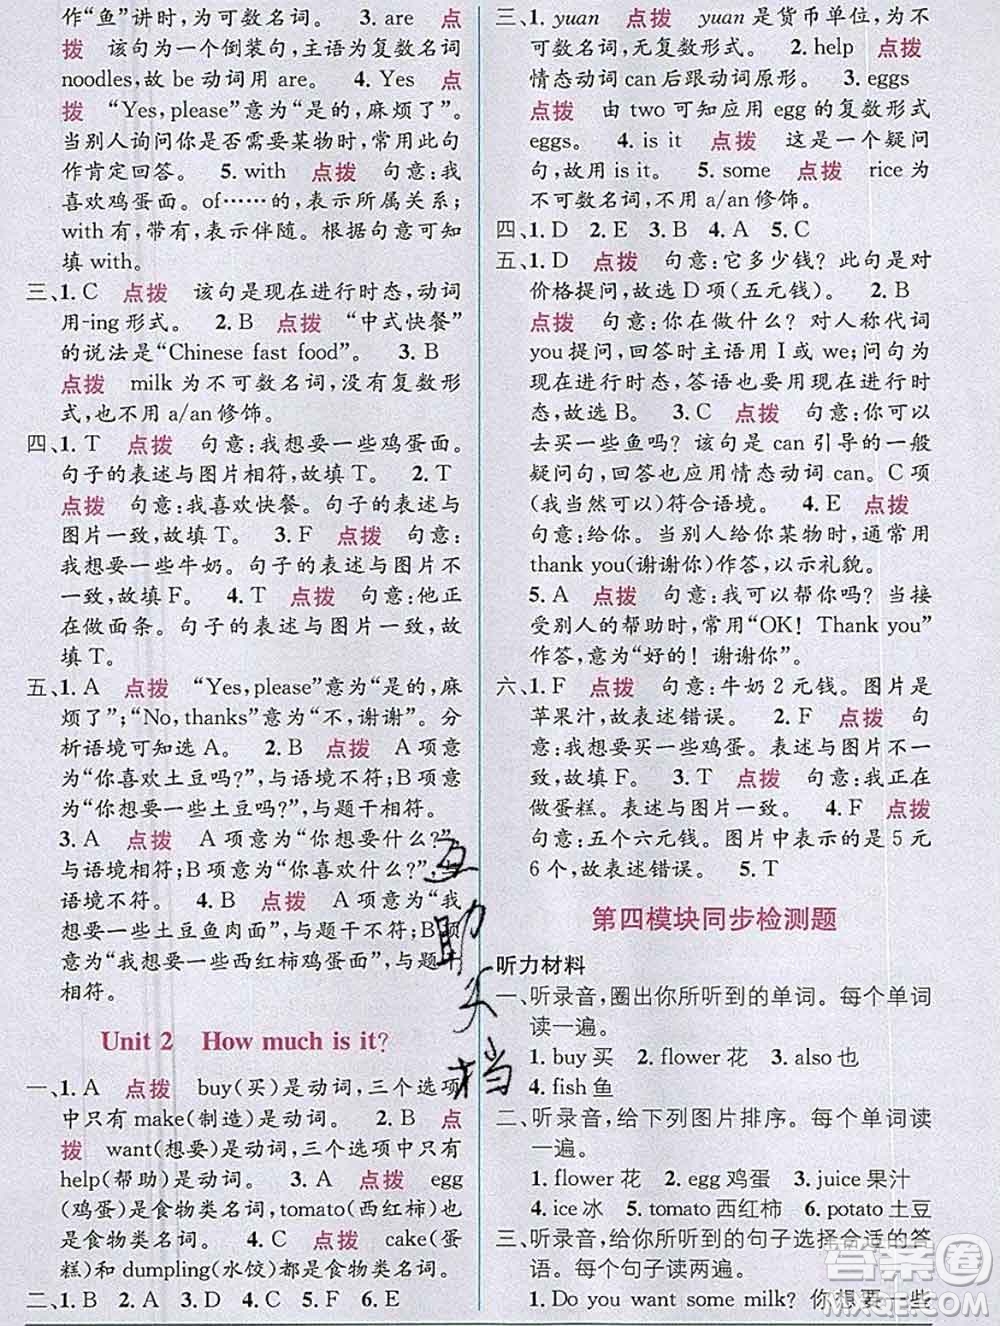 作“鱼”讲时,为可数名词。 3. are 点
拨 该句为一个倒装句,主语为复数名词
noodles,故 be 动词用 are。 4. Yes 点
拨 “Yes, please”意为“是的,麻烦了”。
当别人询问你是否需要某物时,常用此句
作肯定回答。 5. with 点拨 句意:我
喜欢鸡蛋面。of……的,表示所属关系;
with 有,带有,表示伴随。根据句意可知
填 with。
三、1. C 点拨 该句是现在进行时态,动词
用-ing 形式。 2. B 点拨 “中式快餐”
的说法是“Chinese fast food”。 3. B
点拨 milk 为不可数名词,没有复数形
式,也不用 a/an 修饰。
四、1. T 点拨 句意:我想要一些鸡蛋面。
句子的表述与图片相符,故填 T。 2. T
点拨 句意:我喜欢快餐。句子的表述与
图片一致,故填 T。 3. F 点拨 句意:
我想要一些牛奶。句子的表述与图片不
一致,故填 F。 4. T 点拨 句意:他正
在做面条。句子的表述与图片一致,故
填 T。
五、1. A 点拨 “Yes, please”意为“是的,麻
烦了”;“No, thanks”意为“不,谢谢”。分
析语境可知选 A。 2. B 点拨 A 项意
为“你喜欢土豆吗?”,与语境不符;B 项意
为“你想要一些土豆吗?”,与题干相符。
3. A 点拨 A 项意为“你想要什么?”,
与语境相符;B 项意为“你喜欢什么?”,与
语境不符。 4. B 点拨 A 项意为“我想
要一些土豆鱼肉面”,与题干不符;B 项意
为“我想要一些西红柿鸡蛋面”,与题干
相符。
Unit 2 How much is it?
一、1. A 点拨 buy(买)是动词,三个选项
中只有 make(制造)是动词。 2. B 点
拨 want(想要)是动词,三个选项中只有
help(帮助)是动词。 3. A 点拨 egg
(鸡蛋)是食物类名词,tomato(西红柿)也
是食物类名词。 4. C 点拨 cake(蛋
糕)和 dumpling(水饺)都是食物类名词。
二、1. B 2. D 3. C 4. A 5. F 6. E
三、1. yuan 点拨 yuan 是货币单位,为不
可数名词,无复数形式。 2. help 点拨
情态动词 can 后跟动词原形。 3. eggs
点拨 由 two 可知应用 egg 的复数形式
eggs。 4. is it 点拨 这是一个疑问
句,故用 is it。 5. some 点拨 rice 为
不可数名词,不用 a/an 修饰。
四、1. D 2. E 3. B 4. A 5. C
五、1. D 点拨 句意:它多少钱? 此句是对
价格提问,故选 D 项(五元钱)。 2. B
点拨 句意:你在做什么? 对人称代词
you 提问,回答时主语用 I 或 we;问句为
现在进行时态,答语也要用现在进行时
态,故选 B。 3. C 点拨 句意:你可以
去买一些鱼吗? 该句是 can 引导的一般
疑问句,回答也应用情态动词 can。C 项
(我当然可以)符合语境。 4. E 点拨
句意:给你。当别人给你某物时,通常用
thank you(谢谢你)作答,以示礼貌。
5. A 点拨 句意:我可以帮你吗? 当接
受别人的帮助时,常用“OK! Thank you”
作答,意为“好的! 谢谢你”。
六、1. F 点拨 句意:牛奶 2 元钱。图片是
苹果汁,故表述错误。 2. F 点拨 句
意:我想要买一些鸡蛋。表述与图片不一
致,故填 F。 3. T 点拨 句意:我正在
做蛋糕。表述与图片一致。 4. F 点拨
句意:五个六元钱。图片中表示的是 5 元
6 个,故表述错误。 5. T
第四模块同步检测题
听力材料
一、听录音,圈出你所听到的单词。每个单词
读一遍。
1. buy 买 2. flower 花 3. also 也
4. fish 鱼
二、听录音,给下列图片排序。每个单词读
一遍。
1. flower 花 2. egg 鸡蛋 3. juice 果汁
4. ice 冰 5. tomato 西红柿 6. potato 土豆
三、听录音,给你所听到的句子选择合适的答
语。每个句子读两遍。
1. Do you want some milk? 你想要一些
互助文档
答案圈